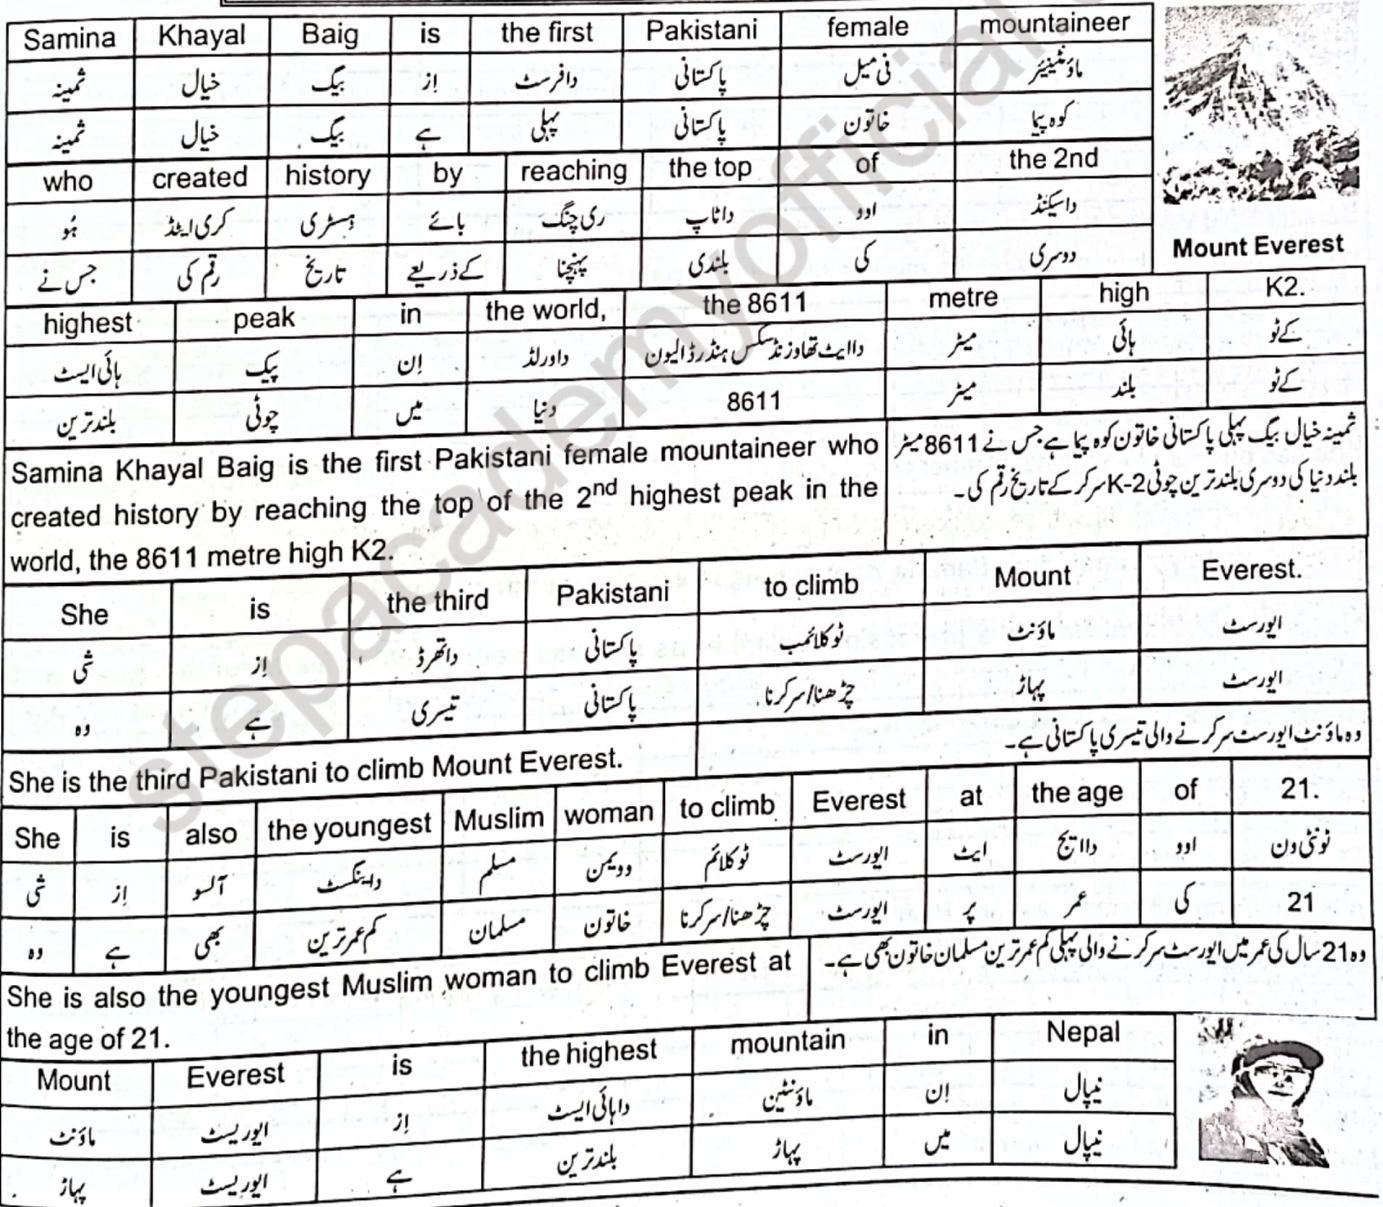 Samina Khayal Baig is the first Pakistani female mountaineer
ثمینہ خیال بیگ اِز دافرسٹ پاکستانی فی میل ماؤنٹینیئر
ثمینہ خیال بیگ ہے پہلی پاکستانی خاتون کوہ پیما
who created history by reaching the top of the 2nd
ہُو کری ایٹڈ ہسٹری بائے ری چنگ داٹاپ اوو داسیکنڈ
جس نے رقم کی تاریخ کے ذریعے پہنچنا بلندی کی دوسری
Mount Everest
highest peak in the world, the 8611 metre high K2.
ہائی ایسٹ پیک اِن داورلڈ داایٹ تھاوزنڈ سکس ہنڈرڈ الیون میٹر ہائی کے ٹو
بلند ترین چوٹی میں دنیا 8611 میٹر بلند کے ٹو
Samina Khayal Baig is the first Pakistani female mountaineer who
created history by reaching the top of the 2nd highest peak in the
world, the 8611 metre high K2.
ثمینہ خیال بیگ پہلی پاکستانی خاتون کوہ پیما ہے جس نے 8611 میٹر
بلند دنیا کی دوسری بلند ترین چوٹی K-2 سر کر کے تاریخ رقم کی۔
She is the third Pakistani to climb Mount Everest.
شی اِز داتھرڈ پاکستانی ٹو کلائمب ماؤنٹ ایورسٹ
وہ ہے تیسری پاکستانی چڑھنا/سر کرنا پہاڑ ایورسٹ
She is the third Pakistani to climb Mount Everest.
وہ ماؤنٹ ایورسٹ سر کرنے والی تیسری پاکستانی ہے۔
She is also the youngest Muslim woman to climb Everest at the age of 21.
شی اِز آلسو داینگسٹ مسلم وویمن ٹو کلائم ایورسٹ ایٹ داایج اوو ٹونٹی ون
وہ ہے بھی کم عمر ترین مسلمان خاتون چڑھنا/سر کرنا ایورسٹ پر عمر کی 21
She is also the youngest Muslim woman to climb Everest at
the age of 21.
وہ 21 سال کی عمر میں ایورسٹ سر کرنے والی پہلی کم عمر ترین مسلمان خاتون بھی ہے۔
Mount Everest is the highest mountain in Nepal
ماؤنٹ ایوریسٹ اِز داہائی ایسٹ ماؤنٹین اِن نیپال
پہاڑ ایوریسٹ ہے بلند ترین پہاڑ میں نیپال
stepacademyofficial